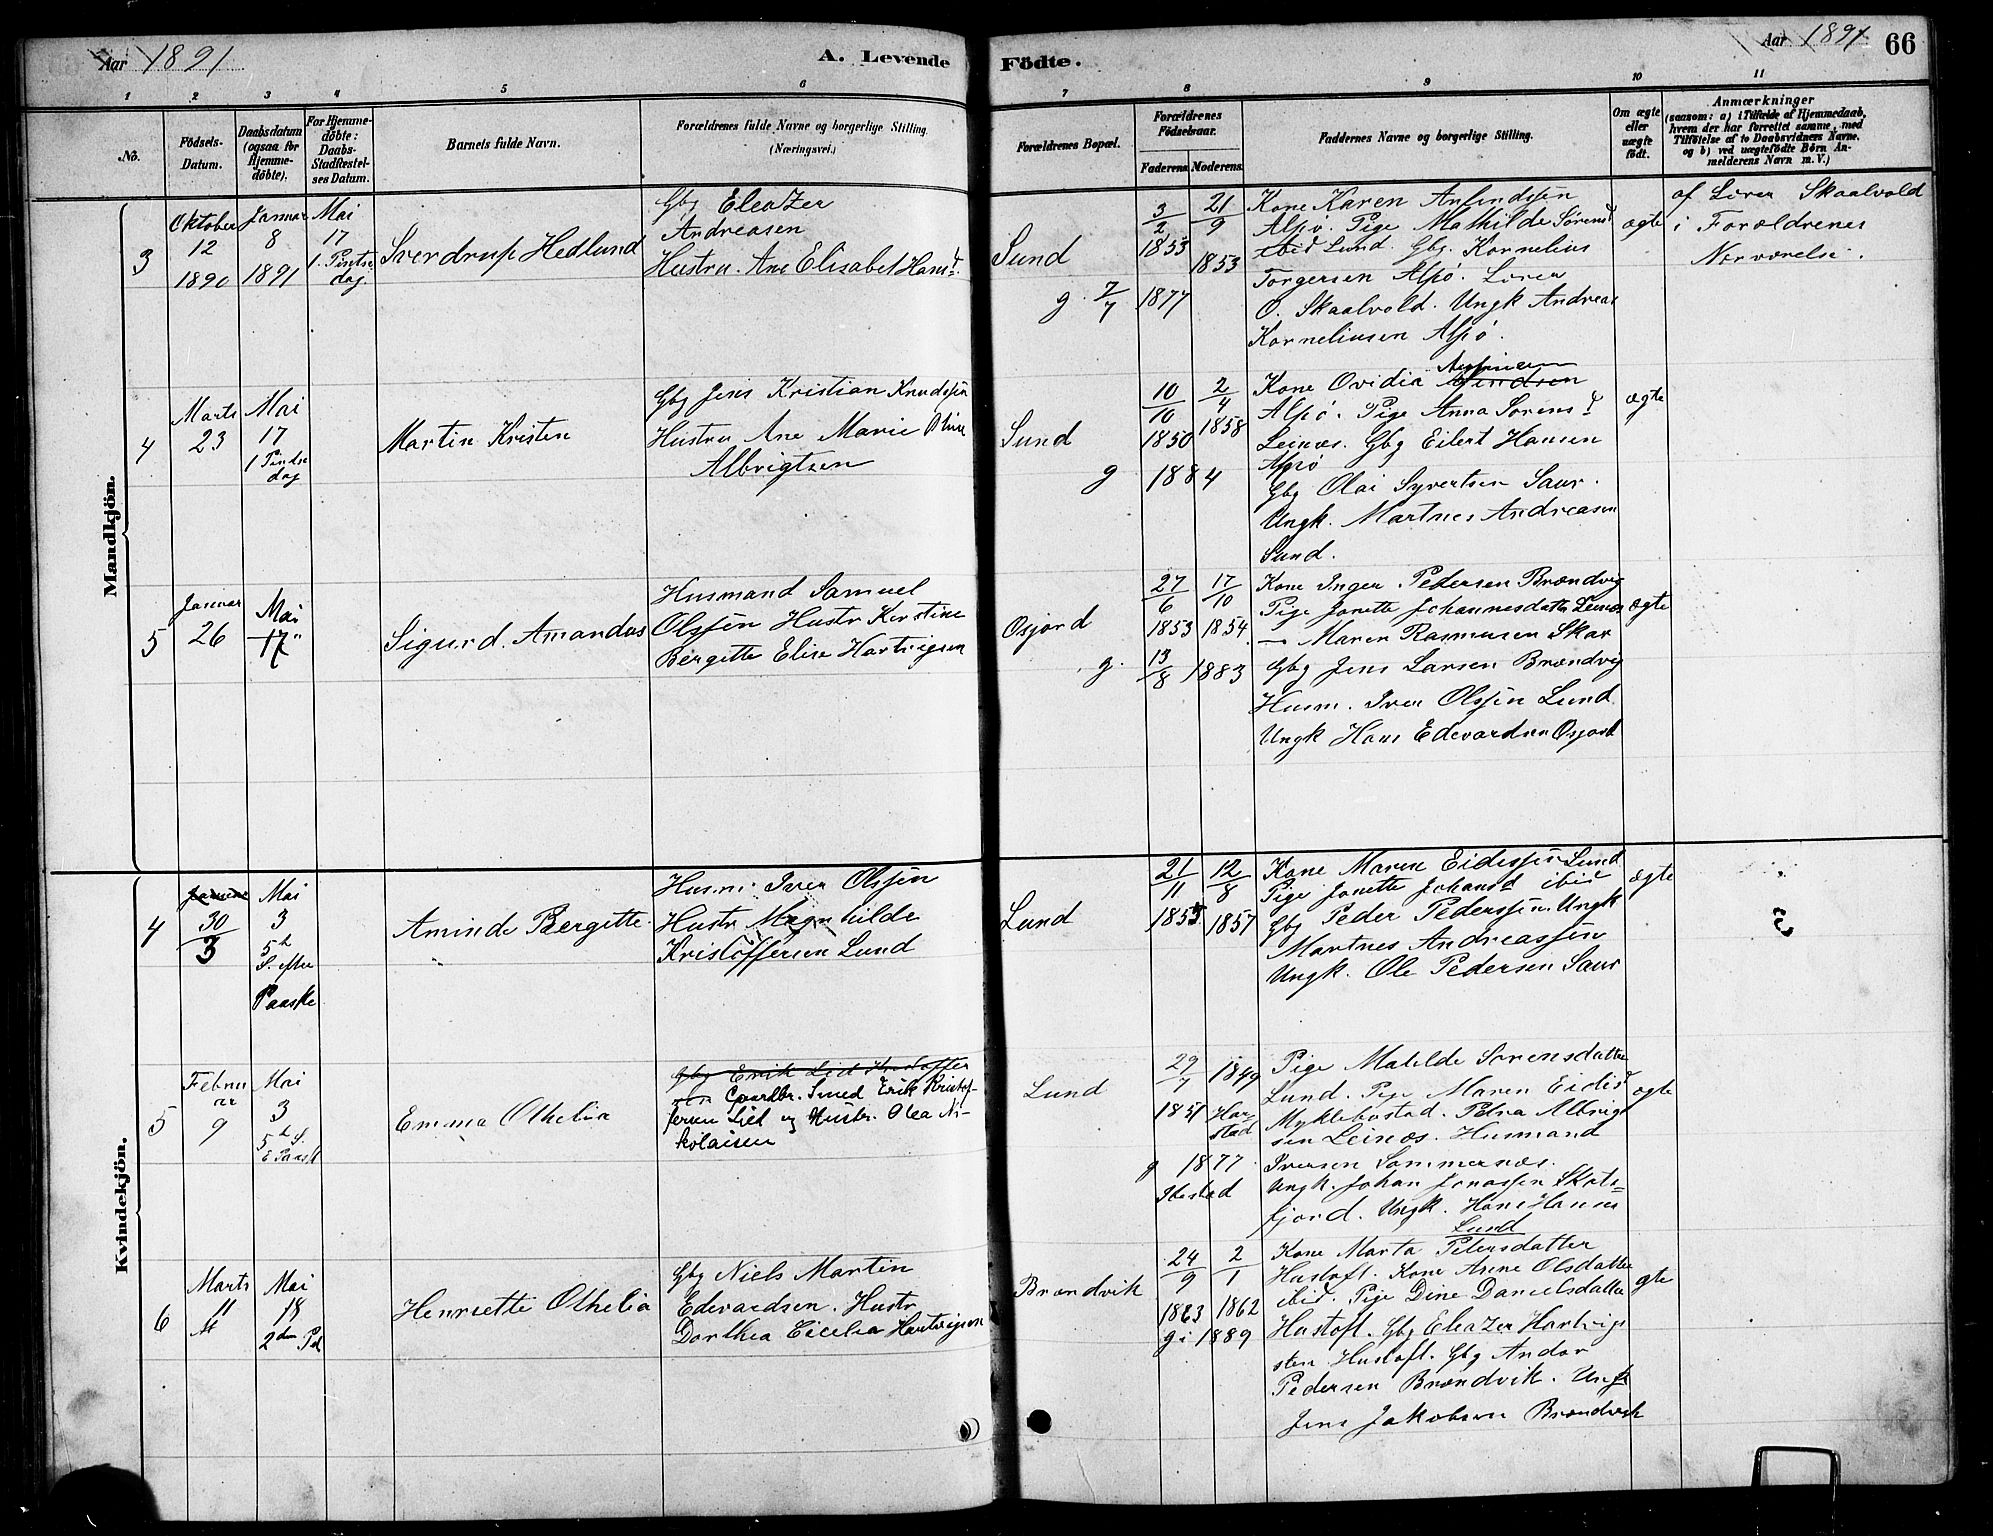 Aar 1891
A. Levende
Födte.
Aar 1891
66
1 2 3 4 5 6 7 8 9 10 11
No.
Födsels-
Datum.
Daabsdatum
(ogsaa for
Hjemme-
döbte).
For Hjemme-
döbte:
Daabs-
Stadfæstel-
ses Datum.
Barnets fulde Navn.
Forældrenes fulde Navne og borgerlige Stilling.
(Næringsvei.)
Forældrenes Bopæl.
Forældrenes
Födselsaar.
Faderens. Moderens.
Faddernes Navne og borgerlige Stilling.
Om ægte
eller
uægte
födt.
Anmærkninger
(saasom: a) i Tilfælde af Hjemmedaab,
hvem der har forrettet samme, med
Tilföielse af to Daabsvidners Navne.
og b) ved uægtefödte Börn An-
melderens Navn m.V.)
Mandkjön.
3
Oktober
12
1890
Januar
8
1891
Mai
17
1. Pintse
dag.
Sverdrup Hedlund
Gbg Eleazer
Andreasen
Hustru. Ane Elisabet Hansd.
Sund
g. 7/7 1877
3/2
1853
21/9
1853
Kone Karen
Alsö. Pige Mathilde Sørensd
ibid Lund. Gbg. Kornelius
Torgersen Alsö. Lærer
O. Skaalvold. Ungk Andreas
Korneliusen Alsö.
ægte
af Lærer Skaalvold
i Forældrenes
Nærværelse.
4
Marts
23
Mai
17
1 Pindse
dag
Martin Kristen
Gbg Jens Kristian Knudssen
Hustru Ane Marie
Albrigtsen
Sund
g 1884
10/10
1850
2/4
1858
Kone Ovidia
Alsö. Pige Anna Sørensd
Leinæs. Gbg Eilert Hansen
Alsö
Gbg Olai Syvertsen Saur.
Ungk. Martnes Andreasen
Sund.
ægte
5
Januar
26
Mai
17"
Sigurd. Amandus
Husmand Samuel
Olssen Hustr Kerstine
Bergitte Elise Hartvigsen
Osjord
g. 13/8 1883
27/6
1853
17/10
1854.
Kone Inger. Pedersen Brændvig
Pige Janette Johannesdatter Leinæs
— Maren Rasmusen Skar
Gbg Jens Larsen Brændvig
Husm. Iver Olssen Lund
Ungk Hans Edevardsen Osjord
ægte
Kvindekjön.
4
Januar
30
3
Mai
3
5te
S. efter
Paaske
Aminde Bergitte
Husm. Iver Olssen
Hustr Magnhilde
Kristoffersen Lund
Lund
21/11
1855
12/8
1857
Kone Maren Eidissen Lund
Pige Janette Johansd ibid
Gbg Peder Pederssen. Ungk
Martnes Andreassen
Ungk. Ole Pedersen Saur
ægte
5
Februar
9
Mai
3
5te S.
E Paask
Emma Othelia
Gbg Erik Lid Kristoffer
sen Gaardbr. Smed Erik Kristof-
fersen Lid og Hustr. Olea Ni-
kolaisen
Lund
29/7
1851
1849
Har-
stad
g 1877
Ibestad
Pige Matilde Sørensdatter
Lund. Pige Maren Eidisd
Myklebostad. Petra Albrigt
sen Leinæs. Husmand
Iversen Sommernæs.
Ungk. Johan Jonassen Skots-
fjord. Ungk. Hans Hansen
Lund
ægte
6
Marts
11
Mai
18
2den Pd
Henriette Othelia
Gbg Niels Martin
Edevardsen. Hustr
Dorthea Cicelia Hartvigsen
Brændvik
24/9
1863
2/1
1862
g i 1889
Kone Marta Petersdatter
Hustoft. Kone Anne Olsdatter
ibid. Pige Dine Danielsdatter
Hustoft. Gbg Eleazer Hartvig
sen Hustoft. Gbg Andor
Pedersen Brændvik. Ungk
Jens Jakobsen Brændvik
ægte